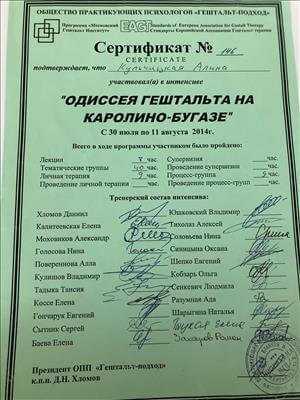 ОБЩЕСТВО ПРАКТИКУЮЩИХ ПСИХОЛОГОВ "ГЕШТАЛЬТ-ПОДХОД"
Программа «Московский Гештальт Институт»
EAGT
Standards of European Association for Gestalt Therapy
Стандарты Европейской Ассоциации Гештальт терапии
Сертификат № 146
CERTIFICATE
подтверждает, что Кульчицкая Алина
участвовал(а) в интенсиве
"ОДИССЕЯ ГЕШТАЛЬТА НА
КАРОЛИНО-БУГАЗЕ"
С 30 июля по 11 августа 2014г.
Всего в ходе программы участником было пройдено:
Лекции 8 час. Супервизия час.
Тематические группы 40 час. Проведение супервизии час.
Личная терапия 9 час. Процесс-группа 9 час.
Проведение личной терапии час. Проведение процесс-групп час.
Тренерский состав интенсива:
Хломов Даниил Юшковский Владимир
Калитеевская Елена Тихолаз Алексей
Моховиков Александр Соловьева Нина
Голосова Нина Синицына Оксана
Повереннова Алла Шепко Евгений
Кулишов Владимир Кобзарь Ольга
Тадыка Таисия Сенкевич Людмила
Коссе Елена Разумная Ада
Гончарук Евгений Шарыгина Наталья
Сытник Сергей
Баева Елена Захаров Роман
Президент ОПП «Гештальт-подход»
к.п.н. Д.Н. Хломов